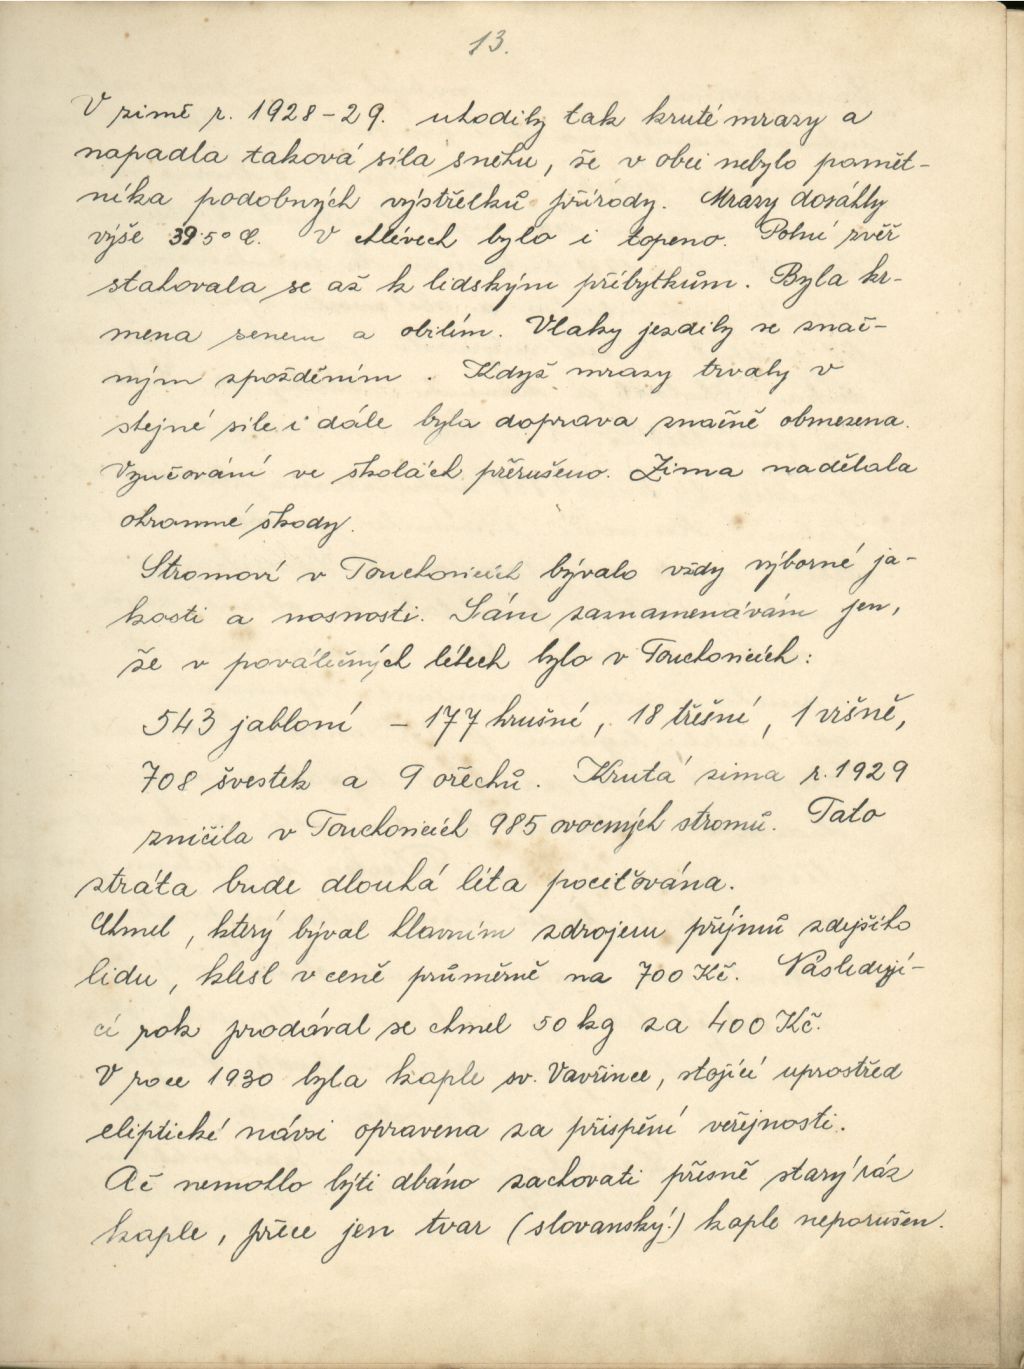 13.
V zimě r. 1928-29. uhodily tak kruté mrazy a
napadla taková síla sněhu, že v obci nebylo pamět-
níka podobných výstřelků přírody. Mrazy dosáhly
výše 39·5° C. V chlévech bylo i topeno. Polní zvěř
stahovala se až k lidským příbytkům. Byla kr-
mena senem a obilím. Vlaky jezdily se znač-
ným zpožděním. Když mrazy trvaly v
stejné síle i dále byla doprava značně obmezena.
Vyučování ve školách přerušeno. Zima nadělala
ohromné škody.
Stromoví v Touchovicích bývalo vždy výborné ja-
kosti a nosnosti. Sám zaznamenávám jen,
že v poválečných létech bylo v Touchovicích:
543 jabloní - 177 hrušní, 18 třešní, 1 višně,
708 švestek a 9 ořechů. Krutá zima r. 1929
zničila v Touchovicích 985 ovocných stromů. Tato
ztráta bude dlouhá léta pociťována.
Chmel, který býval hlavním zdrojem příjmů zdejšího
lidu, klesl v ceně průměrně na 700 Kč. Následují-
cí rok prodával se chmel 50 kg za 400 Kč.
V roce 1930 byla kaple sv. Vavřince, stojící uprostřed
eliptické návsi opravena za přispění veřejnosti.
Ač nemohlo býti dbáno zachovati přesně starý ráz
kaple, přece jen tvar (slovanský!) kaple neporušen.